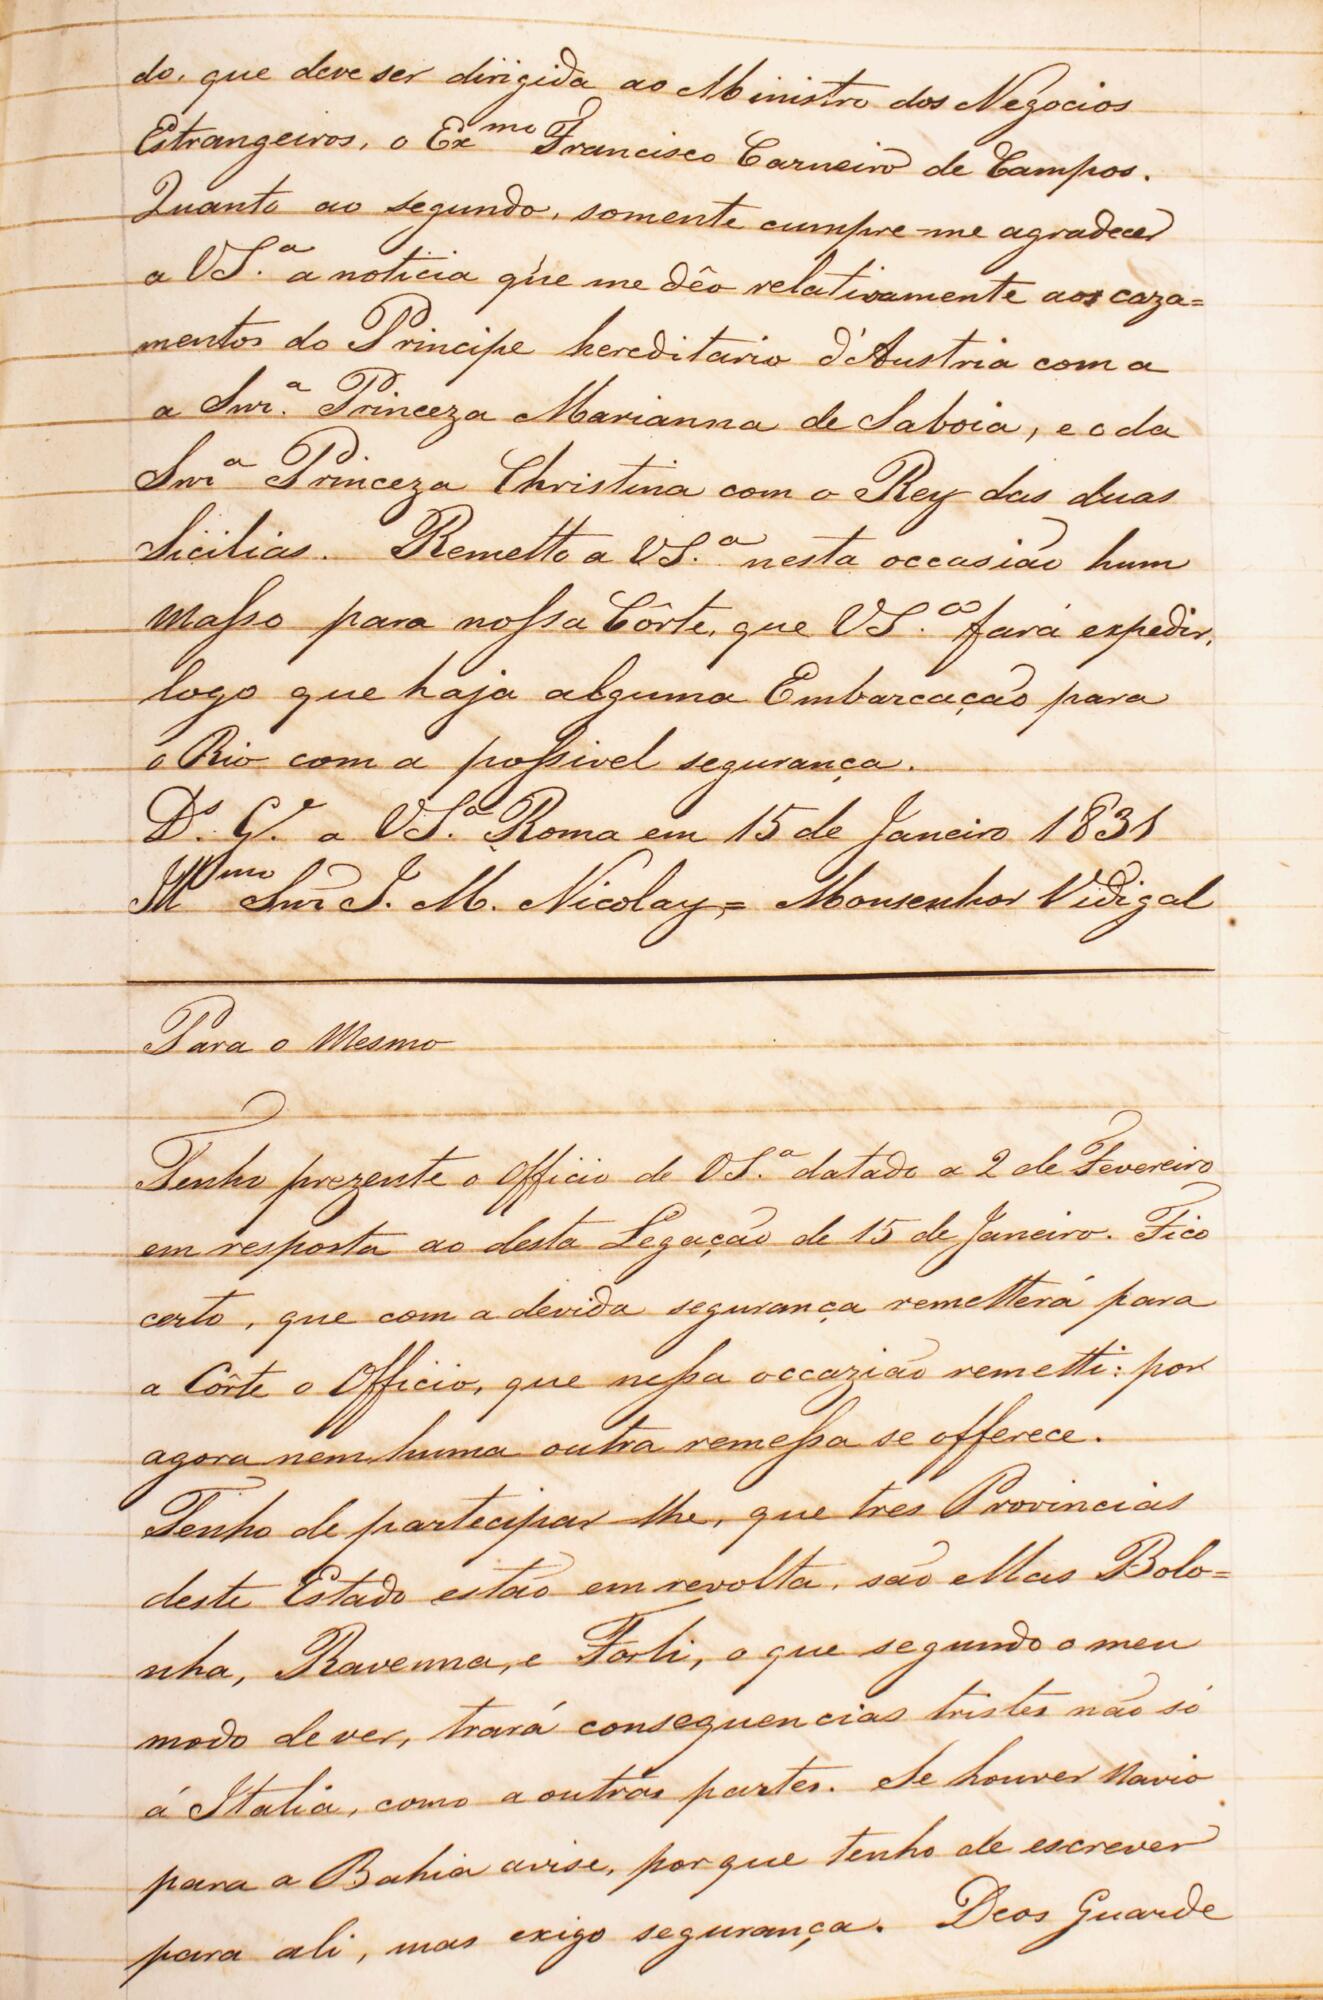 do, que deve ser dirigida ao Ministro dos Negocios
Estrangeiros, o Ex.mo Francisco Carneiro de Campos.
Quanto ao segundo, somente cumpre-me agradecer
a VS.ª a noticia que me dêo relativamente aos caza=
mentos do Principe hereditario d'Austria com a
a Snr.ª Princeza Marianna de Saboia, e o da
Snrª Princeza Christina com o Rey das duas
Sicilias. Remetto a VS.ª nesta occasião hum
masso para nossa Côrte, que VS.ª fará expedir,
logo que haja alguma Embarcação para
o Rio com a possivel segurança.
D.s G.e a VS.ª Roma em 15 de Janeiro 1831
Illmo Snr J. M. Nicolay = Monsenhor Vidigal
Para o Mesmo
Tenho prezente o Officio de VS.ª datado a 2 de Fevereiro
em resposta ao desta Legação de 15 de Janeiro. Fico
certo, que com a devida segurança remetterá para
a Côrte o Officio, que nessa occazião remetti: por
agora nem huma outra remessa se offerece.
Tenho de partecipar-lhe, que tres Provincias
deste Estado estão em revolta, são ellas Bolo=
nha, Ravenna, e Forli, o que segundo o meu
modo de ver, trará consequencias tristes não só
á Italia, como a outras partes. Se houver Navio
para a Bahia avise, porque tenho de escrever
para ali, mas exigo segurança. Deos Guarde